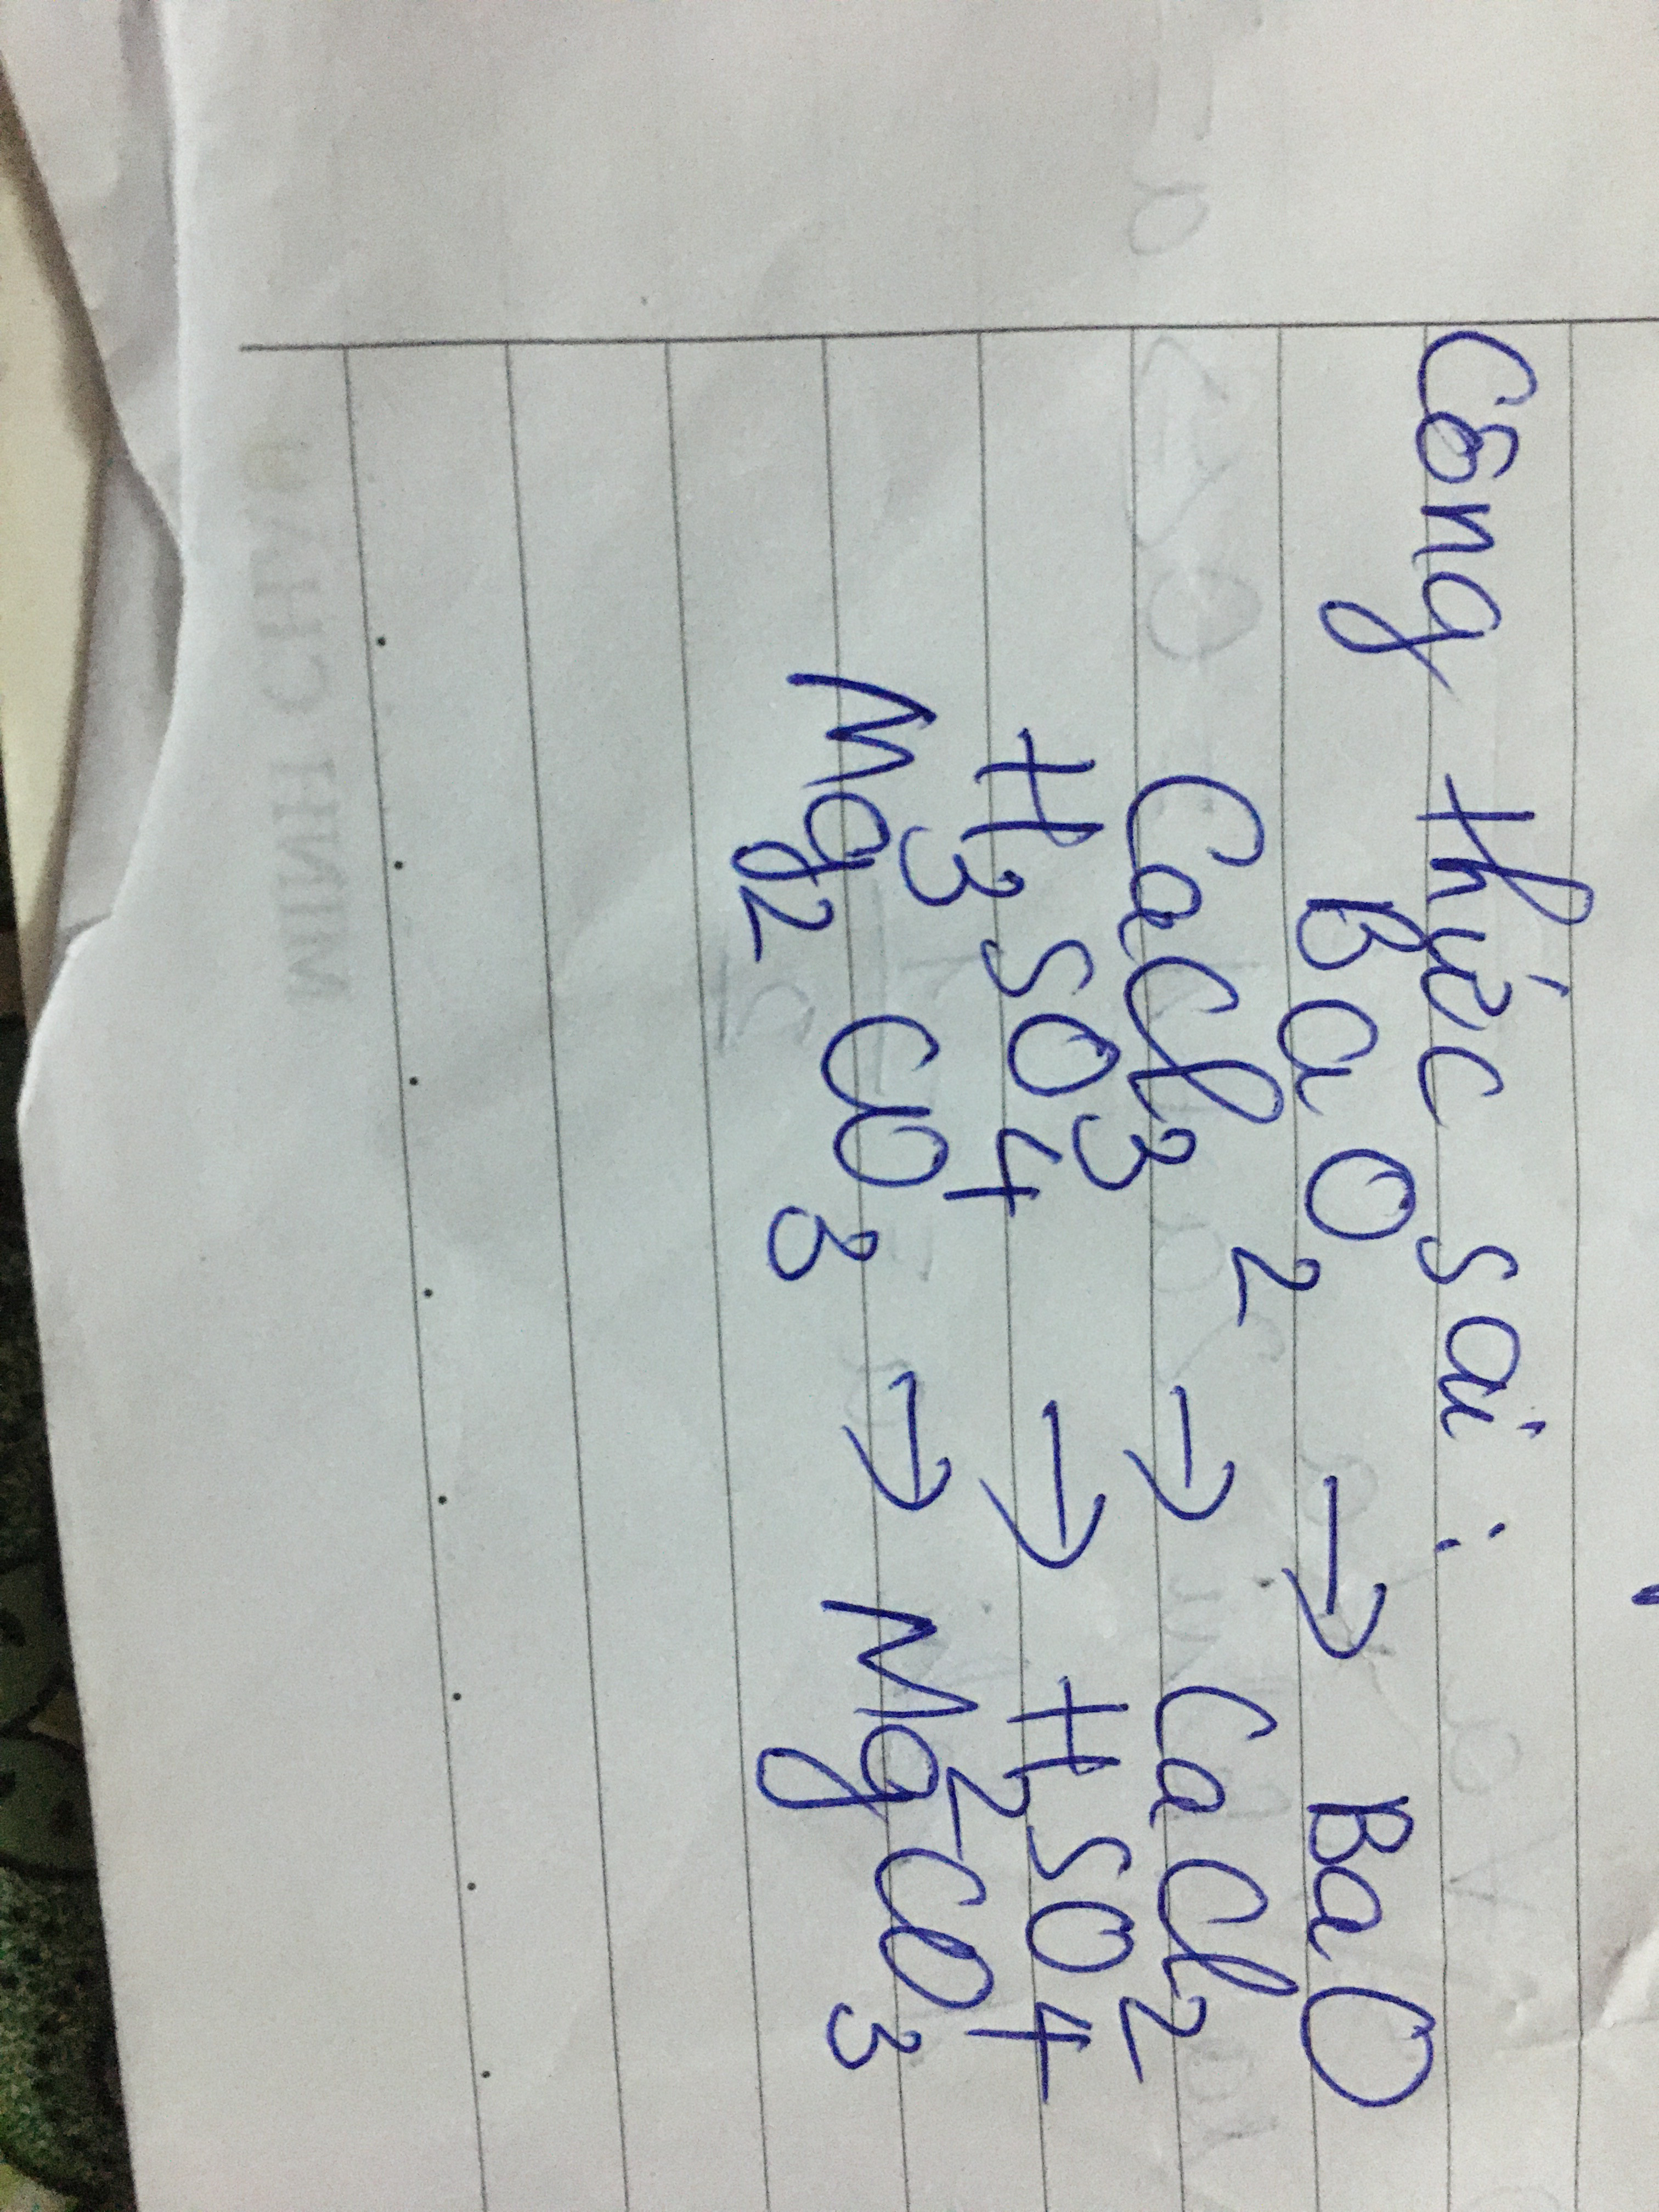 Công thức sai :
BaO2 → BaO
CaCl3 → CaCl2
H3SO4 → H2SO4
Mg2CO3 → MgCO3
MINH CHÂU